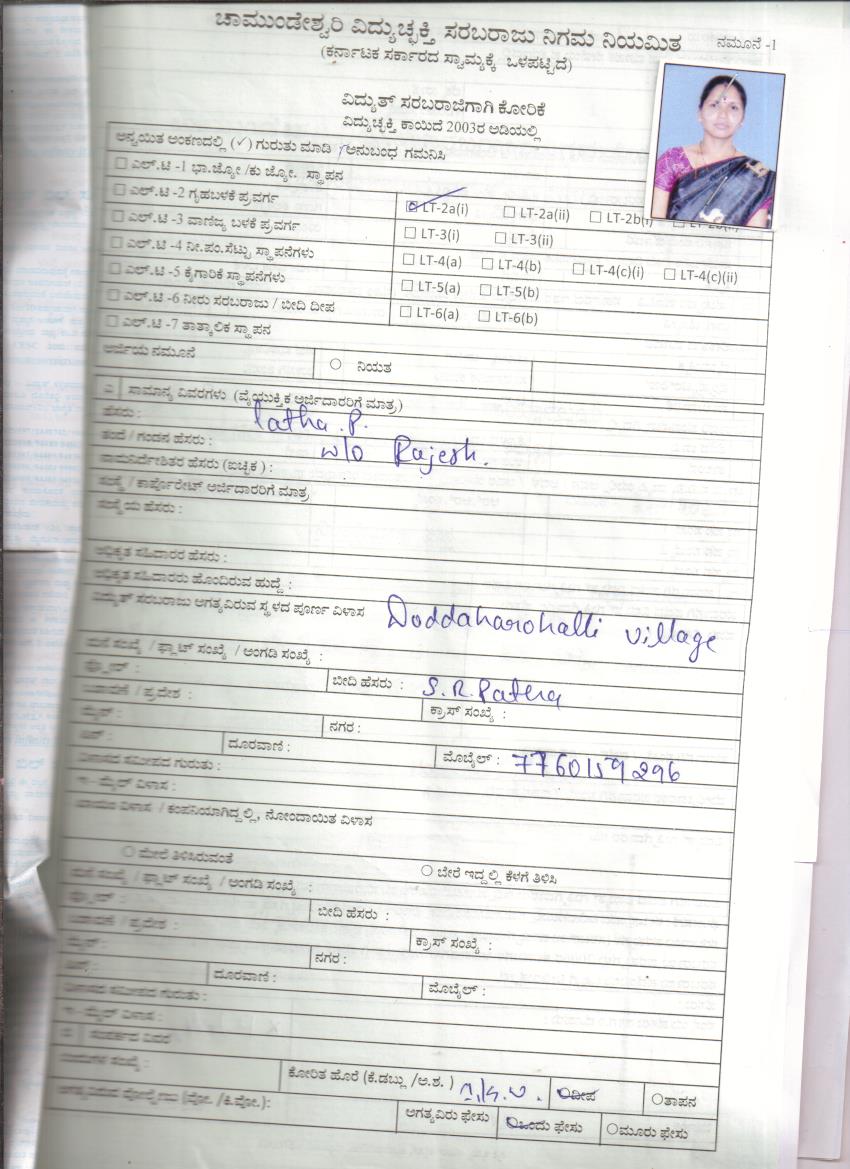 ಚಾಮುಂಡೇಶ್ವರಿ ವಿದ್ಯುಚ್ಛಕ್ತಿ ಸರಬರಾಜು ನಿಗಮ ನಿಯಮಿತ ನಮೂನೆ -1
(ಕರ್ನಾಟಕ ಸರ್ಕಾರದ ಸ್ವಾಮ್ಯಕ್ಕೆ ಒಳಪಟ್ಟಿದೆ)
ವಿದ್ಯುತ್ ಸರಬರಾಜಿಗಾಗಿ ಕೋರಿಕೆ
ವಿದ್ಯುಚ್ಛಕ್ತಿ ಕಾಯಿದೆ 2003ರ ಅಡಿಯಲ್ಲಿ
ಅನ್ವಯಿತ ಅಂಕಣದಲ್ಲಿ (✓) ಗುರುತು ಮಾಡಿ / ಅನುಬಂಧ ಗಮನಿಸಿ
☐ ಎಲ್.ಟಿ -1 ಭಾ.ಜ್ಯೋ /ಕು ಜ್ಯೋ. ಸ್ಥಾಪನ
☐ ಎಲ್.ಟಿ -2 ಗೃಹಬಳಕೆ ಪ್ರವರ್ಗ ☑ LT-2a(i) ☐ LT-2a(ii) ☐ LT-2b(i)
☐ ಎಲ್.ಟಿ -3 ವಾಣಿಜ್ಯ ಬಳಕೆ ಪ್ರವರ್ಗ ☐ LT-3(i) ☐ LT-3(ii)
☐ ಎಲ್.ಟಿ -4 ನೀ.ಪಂ.ಸೆಟ್ಟು ಸ್ಥಾಪನೆಗಳು ☐ LT-4(a) ☐ LT-4(b) ☐ LT-4(c)(i) ☐ LT-4(c)(ii)
☐ ಎಲ್.ಟಿ -5 ಕೈಗಾರಿಕೆ ಸ್ಥಾಪನೆಗಳು ☐ LT-5(a) ☐ LT-5(b)
☐ ಎಲ್.ಟಿ -6 ನೀರು ಸರಬರಾಜು / ಬೀದಿ ದೀಪ ☐ LT-6(a) ☐ LT-6(b)
☐ ಎಲ್.ಟಿ -7 ತಾತ್ಕಾಲಿಕ ಸ್ಥಾಪನ
ಅರ್ಜಿಯ ನಮೂನೆ ○ ನಿಯತ
ಎ ಸಾಮಾನ್ಯ ವಿವರಗಳು (ವೈಯುಕ್ತಿಕ ಅರ್ಜಿದಾರರಿಗೆ ಮಾತ್ರ)
ಹೆಸರು : latha .P.
ತಂದೆ / ಗಂಡನ ಹೆಸರು : w/o Rajesh.
ನಾಮನಿರ್ದೇಶಿತರ ಹೆಸರು (ಐಚ್ಛಿಕ ) :
ಸಂಸ್ಥೆ / ಕಾರ್ಪೊರೇಟ್ ಅರ್ಜಿದಾರರಿಗೆ ಮಾತ್ರ
ಸಂಸ್ಥೆಯ ಹೆಸರು :
ಅಧಿಕೃತ ಸಹಿದಾರರ ಹೆಸರು :
ಅಧಿಕೃತ ಸಹಿದಾರರು ಹೊಂದಿರುವ ಹುದ್ದೆ :
ವಿದ್ಯುತ್ ಸರಬರಾಜು ಅಗತ್ಯವಿರುವ ಸ್ಥಳದ ಪೂರ್ಣ ವಿಳಾಸ Doddaharohalli village
ಮನೆ ಸಂಖ್ಯೆ / ಫ್ಲಾಟ್ ಸಂಖ್ಯೆ / ಅಂಗಡಿ ಸಂಖ್ಯೆ :
ಬೀದಿ ಹೆಸರು : S.R.Patna
ಬಡಾವಣೆ / ಪ್ರದೇಶ : ಕ್ರಾಸ್ ಸಂಖ್ಯೆ :
ನಗರ :
ಪಿನ್ : ದೂರವಾಣಿ : ಮೊಬೈಲ್ : 7760159296
ವಿಳಾಸದ ಸಮೀಪದ ಗುರುತು :
ಇ-ಮೈಲ್ ವಿಳಾಸ :
ಖಾಯಂ ವಿಳಾಸ / ಕಂಪನಿಯಾಗಿದ್ದಲ್ಲಿ, ನೋಂದಾಯಿತ ವಿಳಾಸ
○ ಮೇಲೆ ತಿಳಿಸಿರುವಂತೆ ○ ಬೇರೆ ಇದ್ದಲ್ಲಿ ಕೆಳಗೆ ತಿಳಿಸಿ
ಮನೆ ಸಂಖ್ಯೆ / ಫ್ಲಾಟ್ ಸಂಖ್ಯೆ / ಅಂಗಡಿ ಸಂಖ್ಯೆ :
ಬೀದಿ ಹೆಸರು :
ಬಡಾವಣೆ / ಪ್ರದೇಶ : ಕ್ರಾಸ್ ಸಂಖ್ಯೆ :
ನಗರ :
ಪಿನ್ : ದೂರವಾಣಿ : ಮೊಬೈಲ್ :
ವಿಳಾಸದ ಸಮೀಪದ ಗುರುತು :
ಇ-ಮೈಲ್ ವಿಳಾಸ :
ಸಂಪರ್ಕದ ವಿವರ
ಕೋರಿತ ಹೊರೆ (ಕೆ.ಡಬ್ಲು /ಅ.ಶ. ) ದೀಪ ○ತಾಪನ
ಅಗತ್ಯವಿರು ಫೇಸು ಒಂದು ಫೇಸು ○ಮೂರು ಫೇಸು